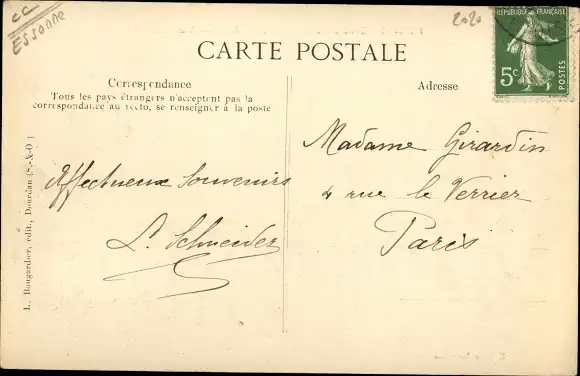 CC
ESSONNE
2020
RÉPUBLIQUE FRANÇAISE
5c
POSTES
CARTE POSTALE
Correspondance
Tous les pays étrangers n'acceptent pas la
correspondance au recto, se renseigner à la poste
Adresse
Affectueux Souvenirs
L. Schneider
Madame Girardin
4 rue le Verrier
Paris
L. Bougardier, édit., Dourdan (S.-&-O.)